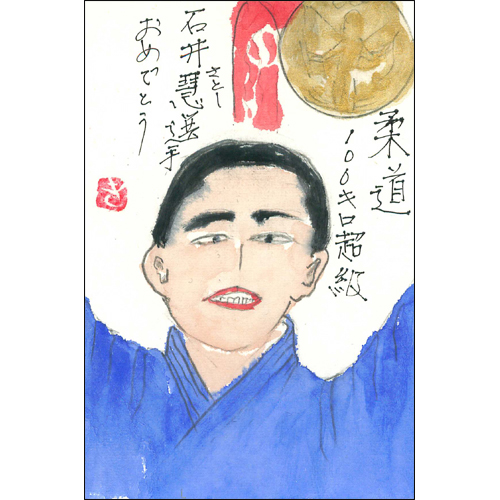 柔道
100キロ超級
石井慧選手
さとし
おめでとう
き